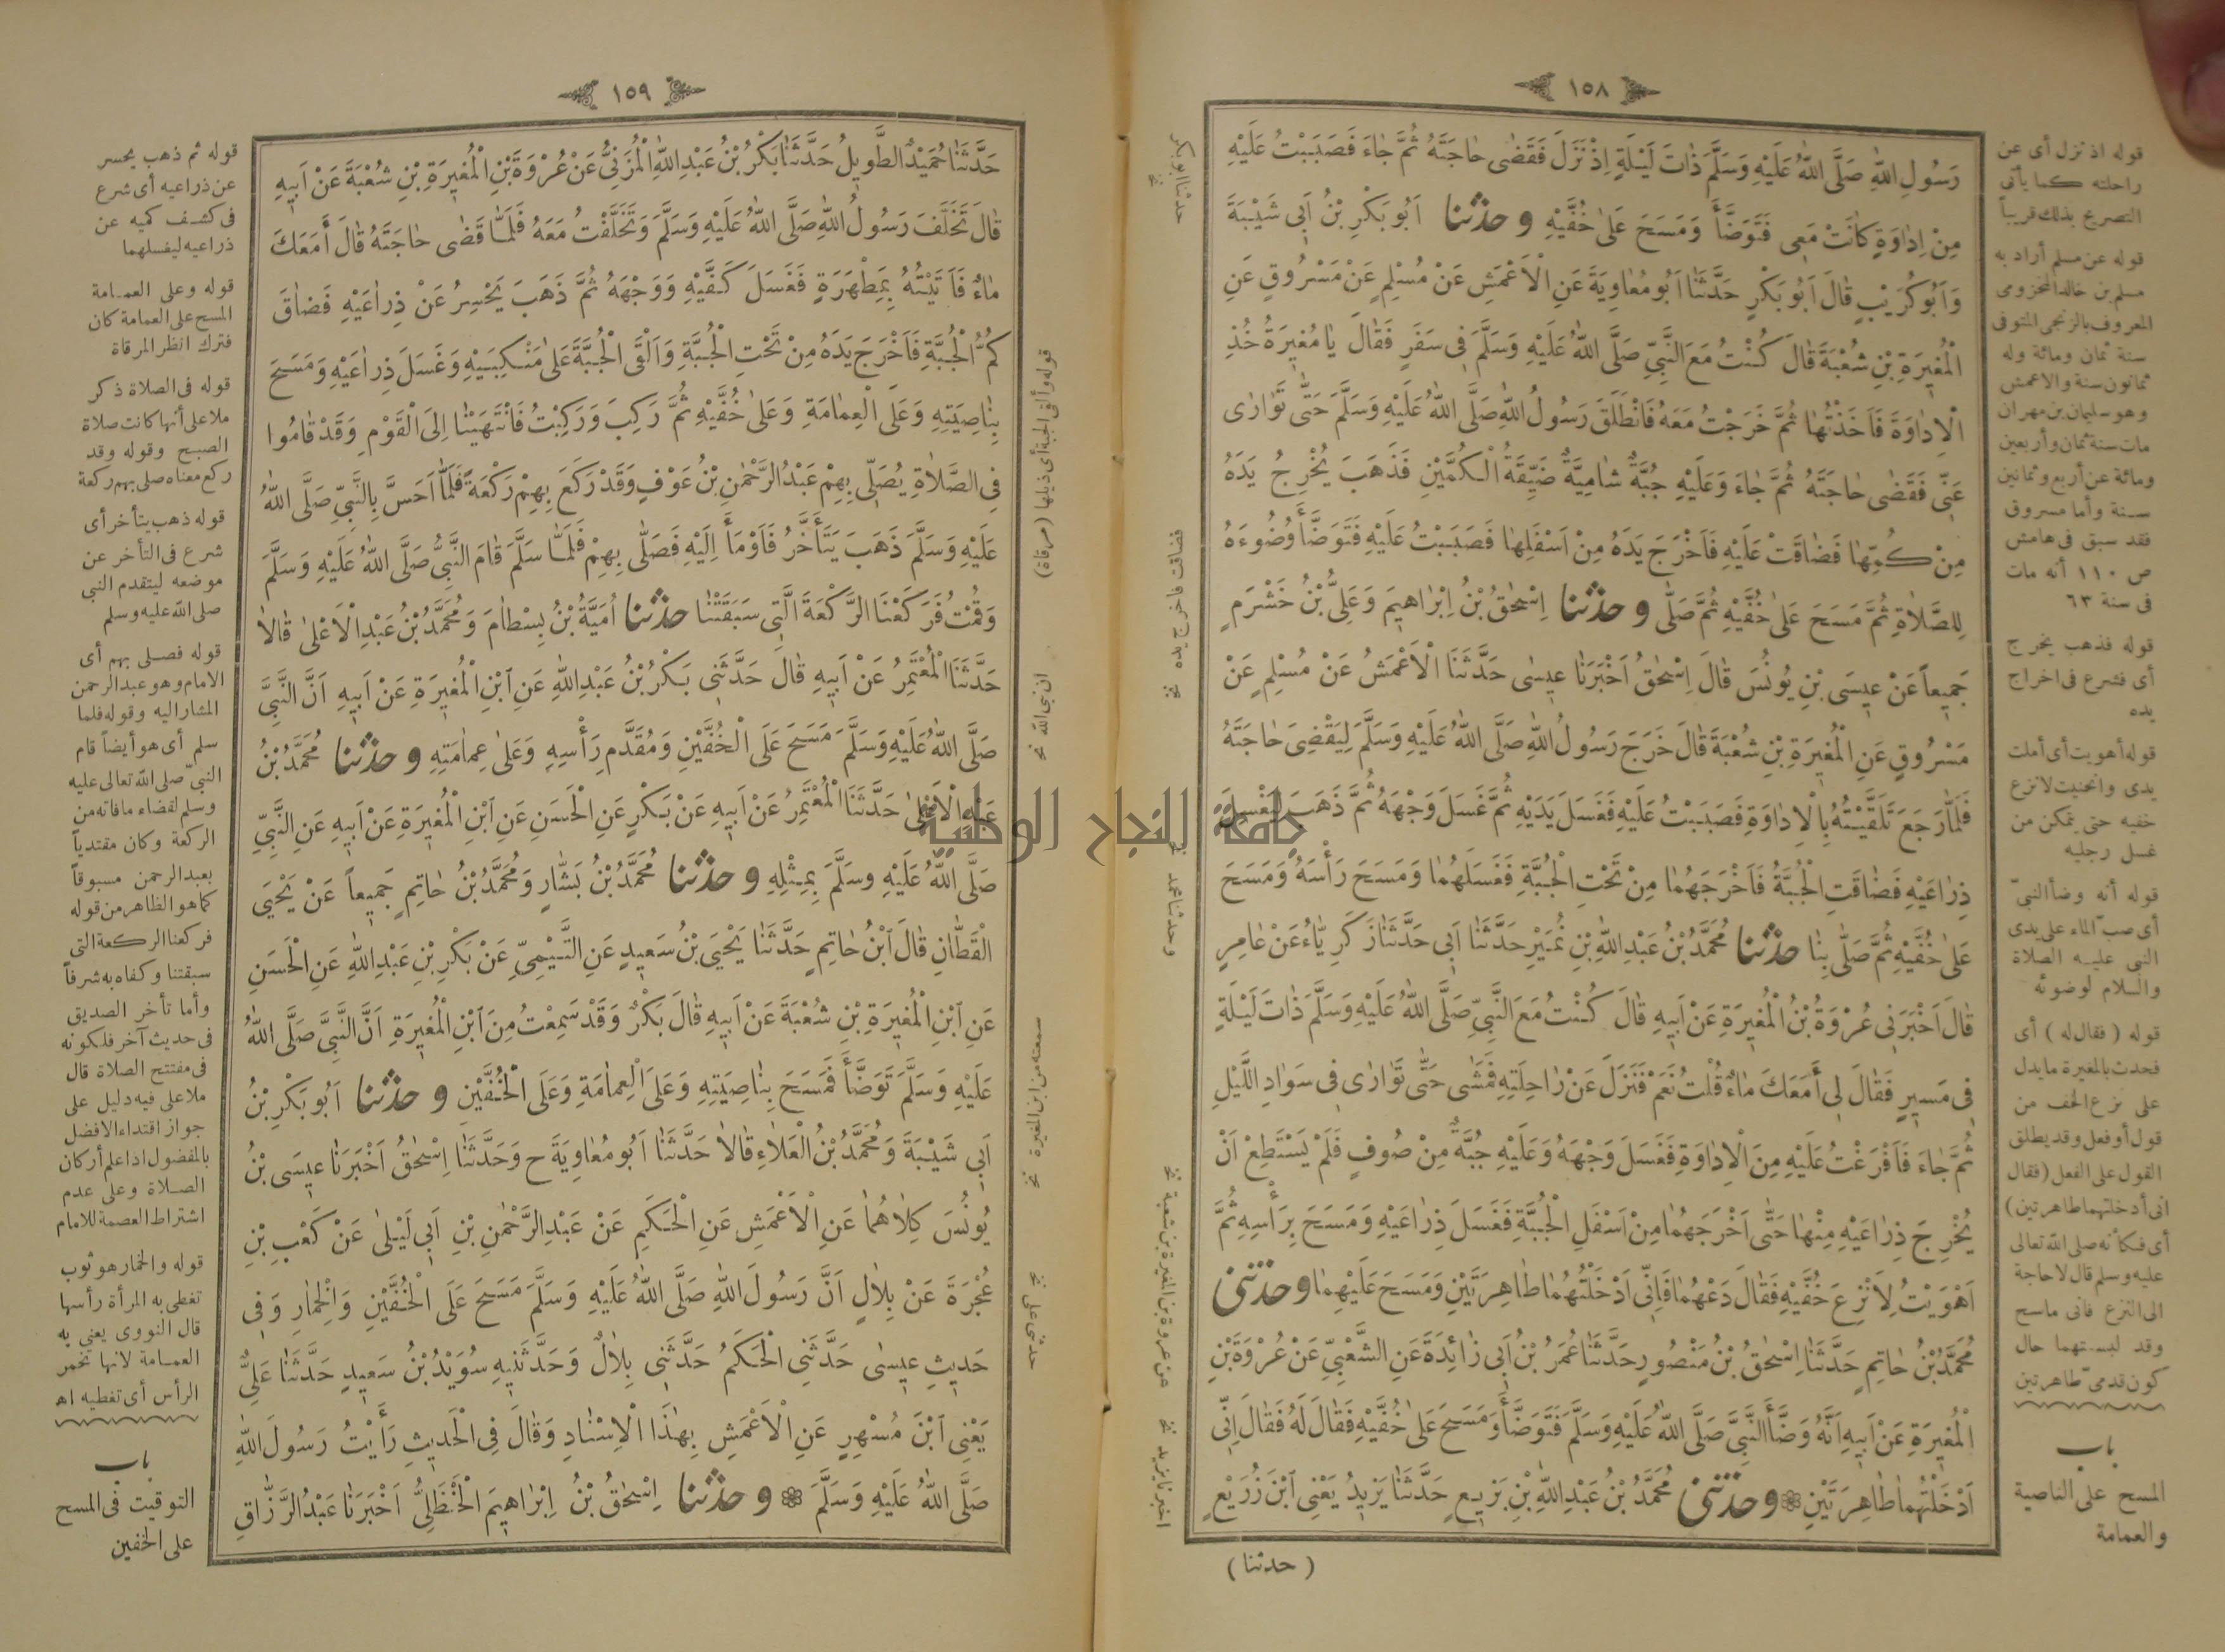 ١٥٨
رَسُولِ اللهِ صَلَّى اللهُ عَلَيْهِ وَسَلَّمَ ذَاتَ لَيْلَةٍ اِذْ نَزَلَ فَقَضٰى حَاجَتَهُ ثُمَّ جَاءَ فَصَبَبْتُ عَلَيْهِ
مِنْ اِدَاوَةٍ كَانَتْ مَعِى فَتَوَضَّأَ وَمَسَحَ عَلٰى خُفَّيْهِ و حدثنا اَبُو بَكْرِ بْنُ اَبِى شَيْبَةَ
وَاَبُو كُرَيْبٍ قَالَ اَبُو بَكْرٍ حَدَّثَنَا اَبُو مُعَاوِيَةَ عَنِ الْاَعْمَشِ عَنْ مُسْلِمٍ عَنْ مَسْرُوقٍ عَنِ
الْمُغِيرَةِ بْنِ شُعْبَةَ قَالَ كُنْتُ مَعَ النَّبِىِّ صَلَّى اللهُ عَلَيْهِ وَسَلَّمَ فِى سَفَرٍ فَقَالَ يَا مُغِيرَةُ خُذِ
الْاِدَاوَةَ فَاَخَذْتُهَا ثُمَّ خَرَجْتُ مَعَهُ فَانْطَلَقَ رَسُولُ اللهِ صَلَّى اللهُ عَلَيْهِ وَسَلَّمَ حَتّٰى تَوَارٰى
عَنِّى فَقَضٰى حَاجَتَهُ ثُمَّ جَاءَ وَعَلَيْهِ جُبَّةٌ شَامِيَّةٌ ضَيِّقَةُ الْكُمَّيْنِ فَذَهَبَ يُخْرِجُ يَدَهُ
مِنْ كُمِّهَا فَضَاقَتْ عَلَيْهِ فَاَخْرَجَ يَدَهُ مِنْ اَسْفَلِهَا فَصَبَبْتُ عَلَيْهِ فَتَوَضَّأَ وُضُوءَهُ
لِلصَّلَاةِ ثُمَّ مَسَحَ عَلٰى خُفَّيْهِ ثُمَّ صَلّٰى و حدثنا اِسْحٰقُ بْنُ اِبْرَاهِيمَ وَعَلِىُّ بْنُ خَشْرَمٍ
جَمِيعاً عَنْ عِيسَى بْنِ يُونُسَ قَالَ اِسْحٰقُ اَخْبَرَنَا عِيسٰى حَدَّثَنَا الْاَعْمَشُ عَنْ مُسْلِمٍ عَنْ
مَسْرُوقٍ عَنِ الْمُغِيرَةِ بْنِ شُعْبَةَ قَالَ خَرَجَ رَسُولُ اللهِ صَلَّى اللهُ عَلَيْهِ وَسَلَّمَ لِيَقْضِىَ حَاجَتَهُ
فَلَمَّا رَجَعَ تَلَقَّيْتُهُ بِالْاِدَاوَةِ فَصَبَبْتُ عَلَيْهِ فَغَسَلَ يَدَيْهِ ثُمَّ غَسَلَ وَجْهَهُ ثُمَّ ذَهَبَ لِيَغْسِلَ
ذِرَاعَيْهِ فَضَاقَتِ الْجُبَّةُ فَاَخْرَجَهُمَا مِنْ تَحْتِ الْجُبَّةِ فَغَسَلَهُمَا وَمَسَحَ رَأْسَهُ وَمَسَحَ
عَلٰى خُفَّيْهِ ثُمَّ صَلّٰى بِنَا حدثنا مُحَمَّدُ بْنُ عَبْدِ اللهِ بْنِ نُمَيْرٍ حَدَّثَنَا اَبِى حَدَّثَنَا زَكَرِيَّاءُ عَنْ عَامِرٍ
قَالَ اَخْبَرَنِى عُرْوَةُ بْنُ الْمُغِيرَةِ عَنْ اَبِيهِ قَالَ كُنْتُ مَعَ النَّبِىِّ صَلَّى اللهُ عَلَيْهِ وَسَلَّمَ ذَاتَ لَيْلَةٍ
فِى مَسِيرٍ فَقَالَ لِى أَمَعَكَ مَاءٌ قُلْتُ نَعَمْ فَنَزَلَ عَنْ رَاحِلَتِهِ فَمَشٰى حَتّٰى تَوَارٰى فِى سَوَادِ اللَّيْلِ
ثُمَّ جَاءَ فَاَفْرَغْتُ عَلَيْهِ مِنَ الْاِدَاوَةِ فَغَسَلَ وَجْهَهُ وَعَلَيْهِ جُبَّةٌ مِنْ صُوفٍ فَلَمْ يَسْتَطِعْ اَنْ
يُخْرِجَ ذِرَاعَيْهِ مِنْهَا حَتّٰى اَخْرَجَهُمَا مِنْ اَسْفَلِ الْجُبَّةِ فَغَسَلَ ذِرَاعَيْهِ وَمَسَحَ بِرَأْسِهِ ثُمَّ
اَهْوَيْتُ لِاَنْزِعَ خُفَّيْهِ فَقَالَ دَعْهُمَا فَاِنِّى اَدْخَلْتُهُمَا طَاهِرَتَيْنِ وَمَسَحَ عَلَيْهِمَا و حدثنى
مُحَمَّدُ بْنُ حَاتِمٍ حَدَّثَنَا اِسْحٰقُ بْنُ مَنْصُورٍ حَدَّثَنَا عُمَرُ بْنُ اَبِى زَائِدَةَ عَنِ الشَّعْبِىِّ عَنْ عُرْوَةَ بْنِ
الْمُغِيرَةِ عَنْ اَبِيهِ اَنَّهُ وَضَّأَ النَّبِىَّ صَلَّى اللهُ عَلَيْهِ وَسَلَّمَ فَتَوَضَّأَ وَمَسَحَ عَلٰى خُفَّيْهِ فَقَالَ لَهُ فَقَالَ اِنِّى
اَدْخَلْتُهُمَا طَاهِرَتَيْنِ و حدثنى مُحَمَّدُ بْنُ عَبْدِ اللهِ بْنِ بَزِيعٍ حَدَّثَنَا يَزِيدُ يَعْنِى ابْنَ زُرَيْعٍ
( حدثنا )
قوله اذ نزل أى عن
راحلته كما يأتى
التصريح بذلك قريباً
قوله عن مسلم أراد به
مسلم بن خالد المخزومى
المعروف بالزنجى المتوفى
سنة ثمان ومائة وله
ثمانون سنة والاعمش
وهو سليمان بن مهران
مات سنة ثمان وأربعين
ومائة عن أربع وثمانين
سنة وأما مسروق
فقد سبق فى هامش
ص ١١٠ أنه مات
فى سنة ٦٣
قوله فذهب يخرج
أى فشرع فى اخراج
يده
قوله أهويت أى أملت
يدى وانحنيت لانزع
خفيه حتى يتمكن من
غسل رجليه
قوله أنه وضأ النبىّ
أى صبّ الماء على يدى
النبى عليه الصلاة
والسلام لوضوئه
قوله ( فقال له ) أى
فحدث بالمغيرة ما يدل
على نزع الخف من
قول أو فعل وقد يطلق
القول على الفعل (فقال
انى أدخلتهما طاهرتين)
أى فكأنه صلى الله تعالى
عليه وسلم قال لا حاجة
الى النزع فانى ماسح
وقد لبستهما حال
كون قدمىّ طاهرتين
باب
المسح على الناصية
والعمامة
حدثنا ابو بكر نخ
فضاقت فاخرج يده نخ
وحدثنا محمد نخ
عن عروة بن المغيرة بن شعبة نخ
اخبرنا يزيد نخ
جامعة النجاح الوطنية
١٥٩
حَدَّثَنَا حُمَيْدٌ الطَّوِيلُ حَدَّثَنَا بَكْرُ بْنُ عَبْدِ اللهِ الْمُزَنِىُّ عَنْ عُرْوَةَ بْنِ الْمُغِيرَةِ بْنِ شُعْبَةَ عَنْ اَبِيهِ
قَالَ تَخَلَّفَ رَسُولُ اللهِ صَلَّى اللهُ عَلَيْهِ وَسَلَّمَ وَتَخَلَّفْتُ مَعَهُ فَلَمَّا قَضٰى حَاجَتَهُ قَالَ أَمَعَكَ
مَاءٌ فَاَتَيْتُهُ بِمِطْهَرَةٍ فَغَسَلَ كَفَّيْهِ وَوَجْهَهُ ثُمَّ ذَهَبَ يَحْسِرُ عَنْ ذِرَاعَيْهِ فَضَاقَ
كُمُّ الْجُبَّةِ فَاَخْرَجَ يَدَهُ مِنْ تَحْتِ الْجُبَّةِ وَاَلْقَى الْجُبَّةَ عَلٰى مَنْكِبَيْهِ وَغَسَلَ ذِرَاعَيْهِ وَمَسَحَ
بِنَاصِيَتِهِ وَعَلَى الْعِمَامَةِ وَعَلٰى خُفَّيْهِ ثُمَّ رَكِبَ وَرَكِبْتُ فَانْتَهَيْنَا اِلَى الْقَوْمِ وَقَدْ قَامُوا
فِى الصَّلَاةِ يُصَلِّى بِهِمْ عَبْدُ الرَّحْمٰنِ بْنُ عَوْفٍ وَقَدْ رَكَعَ بِهِمْ رَكْعَةً فَلَمَّا اَحَسَّ بِالنَّبِىِّ صَلَّى اللهُ
عَلَيْهِ وَسَلَّمَ ذَهَبَ يَتَأَخَّرُ فَاَوْمَأَ اِلَيْهِ فَصَلّٰى بِهِمْ فَلَمَّا سَلَّمَ قَامَ النَّبِىُّ صَلَّى اللهُ عَلَيْهِ وَسَلَّمَ
وَقُمْتُ فَرَكَعْنَا الرَّكْعَةَ الَّتِى سَبَقَتْنَا حدثنا اُمَيَّةُ بْنُ بِسْطَامَ وَمُحَمَّدُ بْنُ عَبْدِ الْاَعْلٰى قَالَا
حَدَّثَنَا الْمُعْتَمِرُ عَنْ اَبِيهِ قَالَ حَدَّثَنِى بَكْرُ بْنُ عَبْدِ اللهِ عَنِ ابْنِ الْمُغِيرَةِ عَنْ اَبِيهِ اَنَّ النَّبِىَّ
صَلَّى اللهُ عَلَيْهِ وَسَلَّمَ مَسَحَ عَلَى الْخُفَّيْنِ وَمُقَدَّمِ رَأْسِهِ وَعَلٰى عِمَامَتِهِ و حدثنا مُحَمَّدُ بْنُ
عَبْدِ الْاَعْلٰى حَدَّثَنَا الْمُعْتَمِرُ عَنْ اَبِيهِ عَنْ بَكْرٍ عَنِ الْحَسَنِ عَنِ ابْنِ الْمُغِيرَةِ عَنْ اَبِيهِ عَنِ النَّبِىِّ
صَلَّى اللهُ عَلَيْهِ وَسَلَّمَ بِمِثْلِهِ و حدثنا مُحَمَّدُ بْنُ بَشَّارٍ وَمُحَمَّدُ بْنُ حَاتِمٍ جَمِيعاً عَنْ يَحْيَى
الْقَطَّانِ قَالَ ابْنُ حَاتِمٍ حَدَّثَنَا يَحْيَى بْنُ سَعِيدٍ عَنِ التَّيْمِىِّ عَنْ بَكْرِ بْنِ عَبْدِ اللهِ عَنِ الْحَسَنِ
عَنِ ابْنِ الْمُغِيرَةِ بْنِ شُعْبَةَ عَنْ اَبِيهِ قَالَ بَكْرٌ وَقَدْ سَمِعْتُ مِنَ ابْنِ الْمُغِيرَةِ اَنَّ النَّبِىَّ صَلَّى اللهُ
عَلَيْهِ وَسَلَّمَ تَوَضَّأَ فَمَسَحَ بِنَاصِيَتِهِ وَعَلَى الْعِمَامَةِ وَعَلَى الْخُفَّيْنِ و حدثنا اَبُو بَكْرِ بْنُ
اَبِى شَيْبَةَ وَمُحَمَّدُ بْنُ الْعَلَاءِ قَالَا حَدَّثَنَا اَبُو مُعَاوِيَةَ ح وَحَدَّثَنَا اِسْحٰقُ اَخْبَرَنَا عِيسَى بْنُ
يُونُسَ كِلَاهُمَا عَنِ الْاَعْمَشِ عَنِ الْحَكَمِ عَنْ عَبْدِ الرَّحْمٰنِ بْنِ اَبِى لَيْلٰى عَنْ كَعْبِ بْنِ
عُجْرَةَ عَنْ بِلَالٍ اَنَّ رَسُولَ اللهِ صَلَّى اللهُ عَلَيْهِ وَسَلَّمَ مَسَحَ عَلَى الْخُفَّيْنِ وَالْخِمَارِ وَفِى
حَدِيثِ عِيسٰى حَدَّثَنِى الْحَكَمُ حَدَّثَنِى بِلَالٌ وَحَدَّثَنِيهِ سُوَيْدُ بْنُ سَعِيدٍ حَدَّثَنَا عَلِىٌّ
يَعْنِى ابْنَ مُسْهِرٍ عَنِ الْاَعْمَشِ بِهٰذَا الْاِسْنَادِ وَقَالَ فِى الْحَدِيثِ رَأَيْتُ رَسُولَ اللهِ
صَلَّى اللهُ عَلَيْهِ وَسَلَّمَ و حدثنا اِسْحٰقُ بْنُ اِبْرَاهِيمَ الْحَنْظَلِىُّ اَخْبَرَنَا عَبْدُ الرَّزَّاقِ
قوله وألقى الجبة أى ذيلها (مرقاة)
ان نبى الله نخ
سمعته من ابن المغيرة نخ
حدثنى على نخ
قوله ثم ذهب يحسر
عن ذراعيه أى شرع
فى كشف كميه عن
ذراعيه ليغسلهما
قوله وعلى العمامة
المسح على العمامة كان
فترك انظر المرقاة
قوله فى الصلاة ذكر
ملا على أنها كانت صلاة
الصبح وقوله وقد
ركع معناه صلى بهم ركعة
قوله ذهب يتأخر أى
شرع فى التأخر عن
موضعه ليتقدم النبى
صلى الله عليه وسلم
قوله فصلى بهم أى
الامام وهو عبد الرحمن
المشار اليه وقوله فلما
سلم أى هو أيضاً قام
النبىّ صلى الله تعالى عليه
وسلم لقضاء ما فاته من
الركعة وكان مقتدياً
بعبد الرحمن مسبوقاً
كما هو الظاهر من قوله
فركعنا الركعة التى
سبقتنا وكفاه به شرفاً
وأما تأخر الصديق
فى حديث آخر فلكونه
فى مفتتح الصلاة قال
ملا على فيه دليل على
جواز اقتداء الافضل
بالمفضول اذا علم أركان
الصلاة وعلى عدم
اشتراط العصمة للامام
قوله والخمار هو ثوب
تغطى به المرأة رأسها
قال النووى يعنى به
العمامة لانها تخمر
الرأس أى تغطيه اه
باب
التوقيت فى المسح
على الخفين